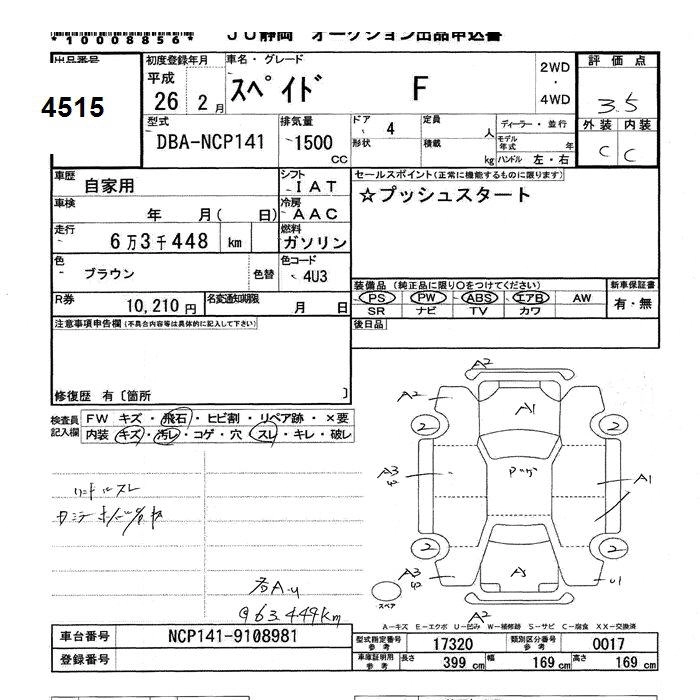 *10008856*
JU静岡 オークション出品申込書
出品番号
4515
初度登録年月
平成
26 2月
車名・グレード
スペイド F
2WD
・
4WD
評価点
3.5
外装 内装
C C
型式
DBA-NCP141
排気量
1500
CC
ドア
4
形状
定員
人
積載
kg
ディーラー・並行
モデル年式 年
ハンドル 左・右
車歴
自家用
シフト
IAT
車検
年 月( 日)
冷房
AAC
走行
6万3千448 km
燃料
ガソリン
色
ブラウン
色替
色コード
4U3
R券
10,210円
名変通知期限
月 日
セールスポイント(正常に機能するものに限ります)
☆プッシュスタート
装備品(純正品に限り〇をつけてください)
新車保証書
PS PW ABS エアB AW
SR ナビ TV カワ
有・無
後日品
注意事項申告欄(不具合内容等は具体的に記入して下さい)
修復歴 有〔箇所 〕
検査員
記入欄
FW キズ・飛石・ヒビ割・リペア跡・×要
内装 キズ・汚レ・コゲ・穴 スレ・キレ・破レ
ハンドルスレ
A-u
@63.449km
A2
A2
A1
2
2
A3
A1
2
2
A3
A3
U1
A2
スペア
A-キズ E-エクボ U-凹み W-補修跡 S-サビ C-腐食 XX-交換済
車台番号
NCP141-9108981
登録番号
型式指定番号
参考
17320
類別区分番号
参考
0017
車庫証明用
参考
長さ 399 cm
幅 169 cm
高さ 169 cm